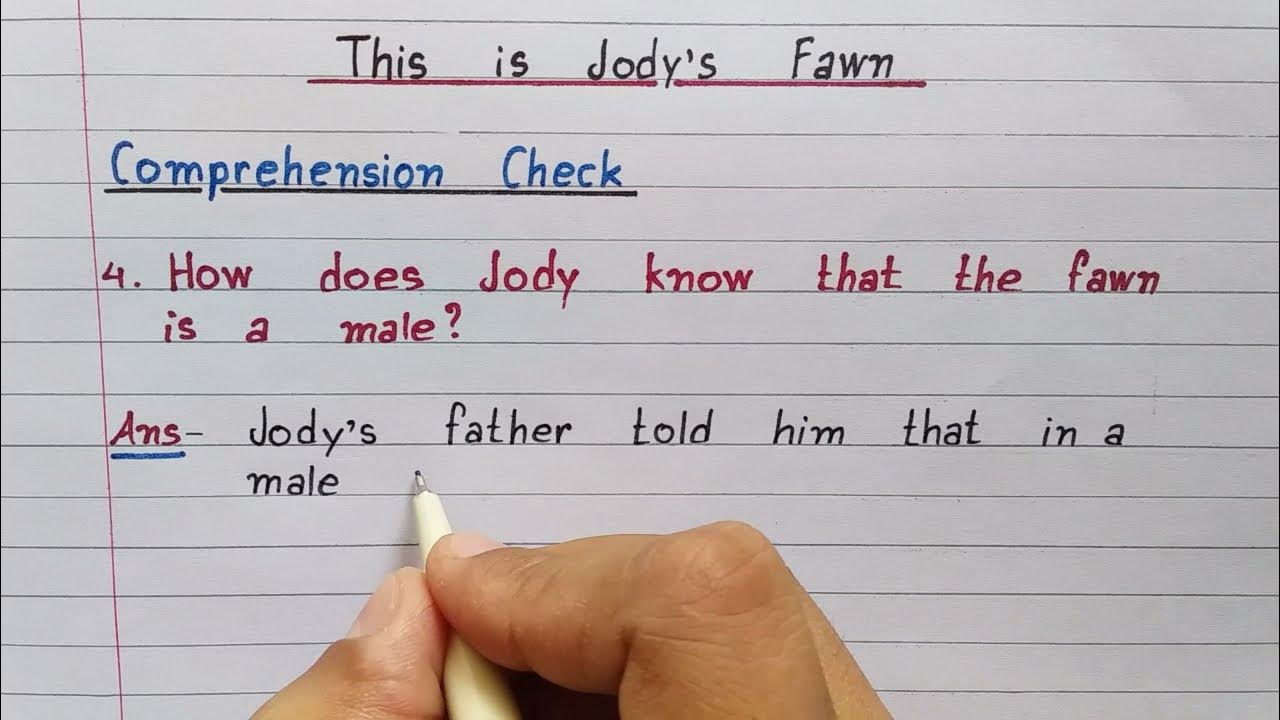 This is Jody's Fawn
Comprehension Check
4. How does Jody know that the fawn
is a male?
Ans- Jody's father told him that in a
male